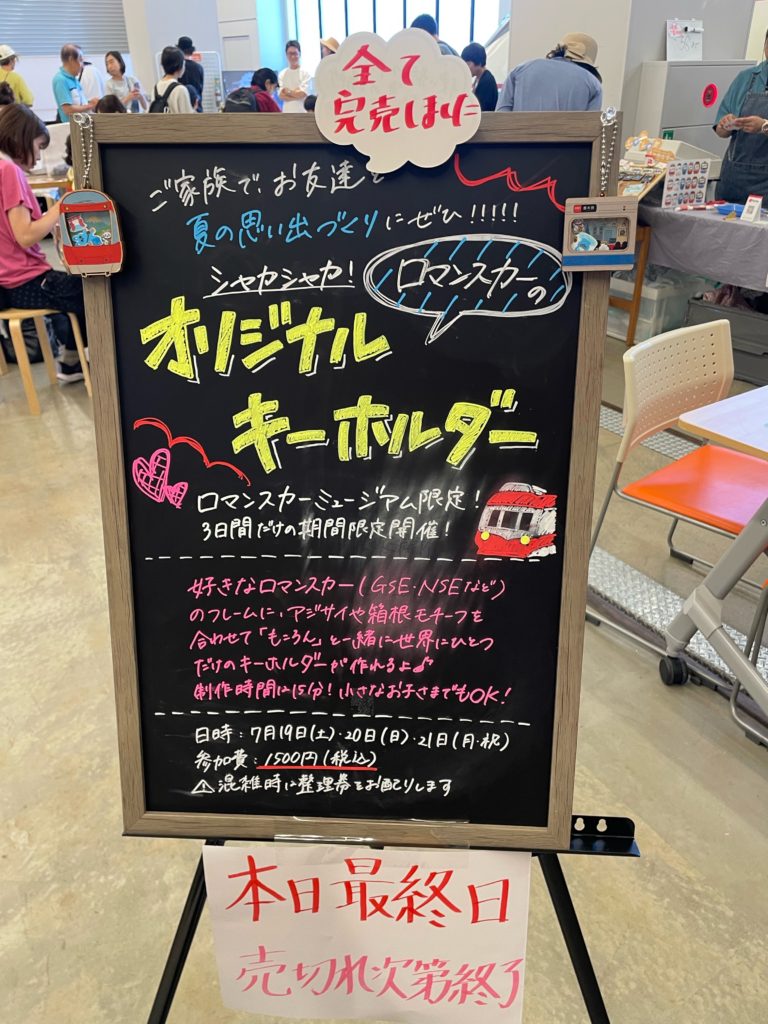 全て
完売しました
ご家族で、お友達と
夏の思い出づくりにぜひ!!!!!
シャカシャカ!
ロマンスカーの
オリジナル
キーホルダー
ロマンスカーミュージアム限定!
3日間だけの期間限定開催!
好きなロマンスカー(GSE・NSEなど)
のフレームに、アジサイや箱根モチーフを
合わせて「もころん」と一緒に世界にひとつ
だけのキーホルダーが作れるよ♪
制作時間は15分!小さなお子さまでもOK!
日時:7月19日(土)・20日(日)・21日(月・祝)
参加費:1500円(税込)
⚠混雑時は整理券をお配りします
本日最終日
売切れ次第終了